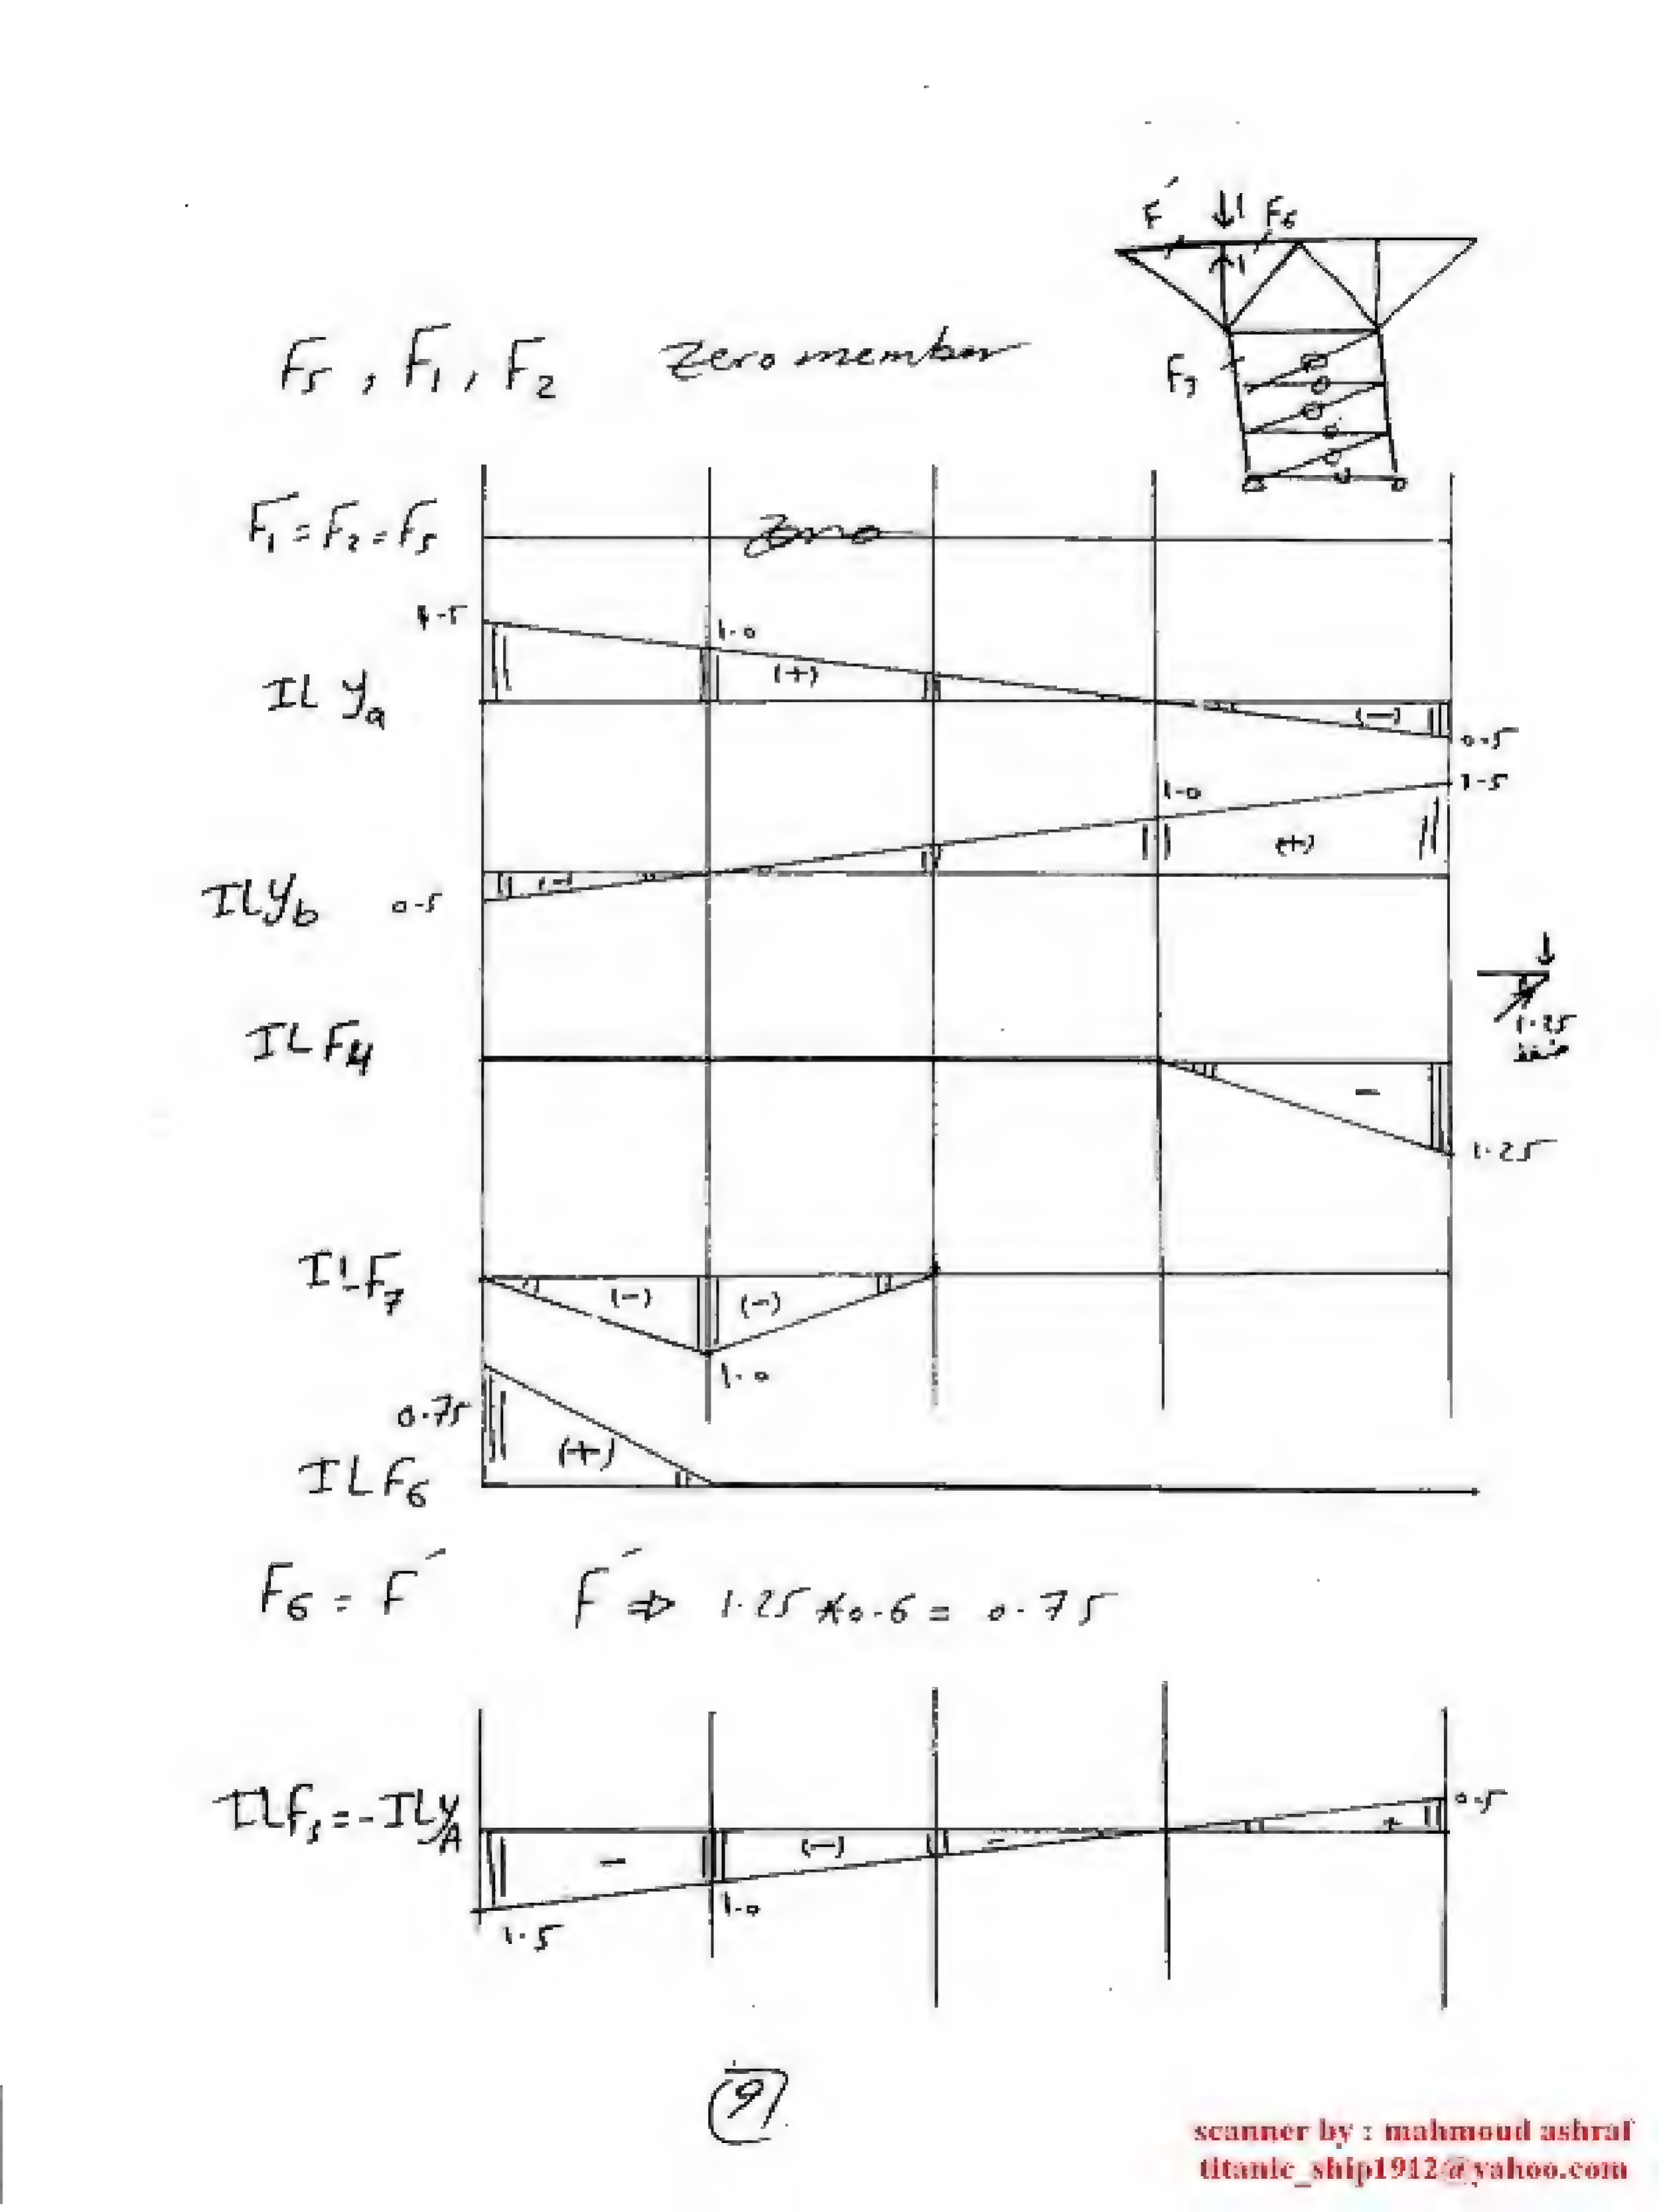 F′ ↓1 F6
1
F5 , F1 , F2 Zero member
F7
F1 = F2 = F5 Zero
1.5
1.0
(+)
IL Ya
(-)
0.5
1.5
1.0
(+)
(-)
IL Yb 0.5
IL F4
1.25
-
1.25
IL F7
(-) (-)
1.0
0.75
(+)
IL F6
F6 = F′ F′ ⇒ 1.25 * 0.6 = 0.75
0.5
+
- (-) -
1.0
1.5
9
scanner by : mahmoud ashraf
titanic_ship1912@yahoo.com